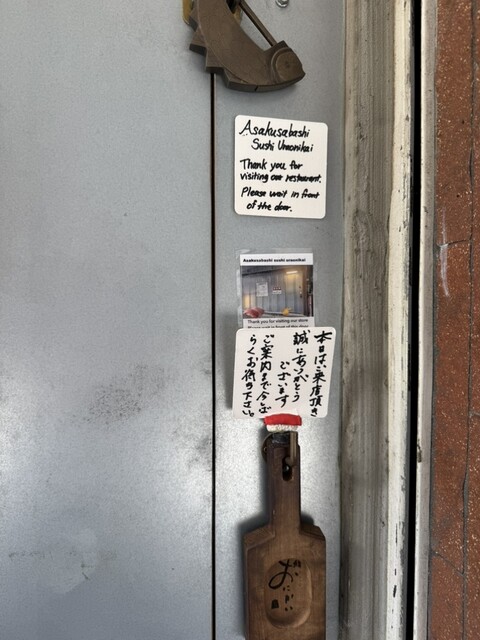 Asakusabashi
Sushi Umonikai
Thank you for
visiting our restaurant.
Please wait in front
of the door.
Asakusabashi sushi uraonikai
Thank you for visiting our store
本日は、ご来店頂き
誠にありがとう
ございます
ご案内まで今しば
らくお待ち下さい。